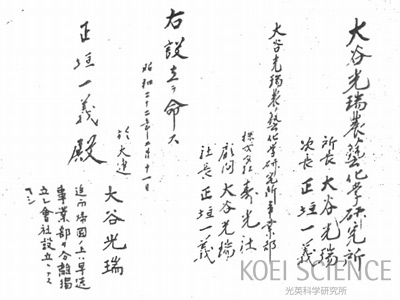 大谷光瑞農藝化学研究所
所長 大谷光瑞
次長 正垣一義
大谷光瑞農藝化学研究所事業部
株式会社 寿光社
顧問 大谷光瑞
社長 正垣一義
右設立ヲ命ス
昭和二十二年 月十一日
於大連
大谷光瑞
正垣一義殿
追而帰国ノ上ハ早速
事業部ヲ分離独
立シ会社設立シテ
KOEI SCIENCE
光英科学研究所